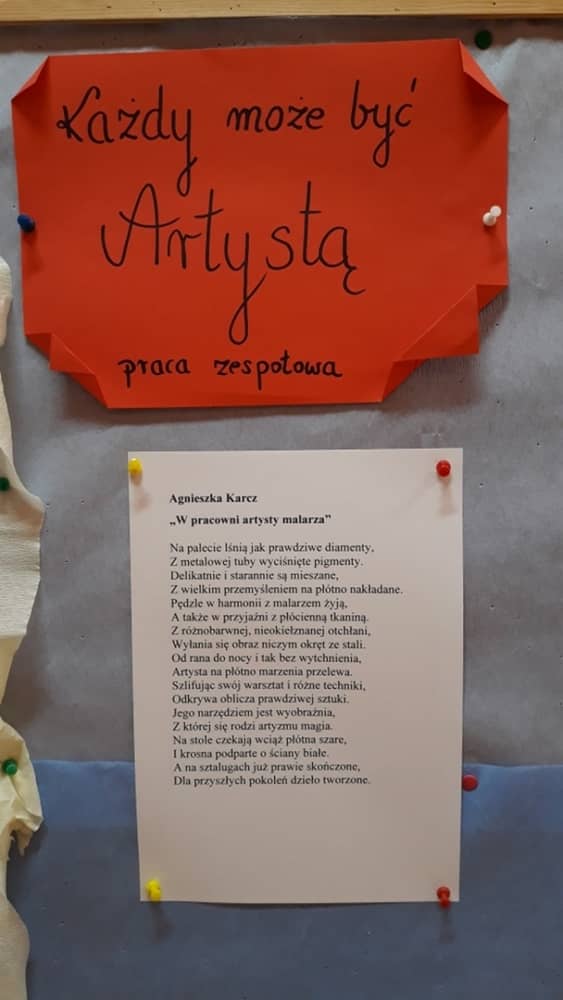 Każdy może być
Artystą
praca zespołowa
Agnieszka Karcz
„W pracowni artysty malarza”
Na palecie lśnią jak prawdziwe diamenty,
Z metalowej tuby wyciśnięte pigmenty.
Delikatnie i starannie są mieszane,
Z wielkim przemyśleniem na płótno nakładane.
Pędzle w harmonii z malarzem żyją,
A także w przyjaźni z płócienną tkaniną.
Z różnobarwnej, nieokiełznanej otchłani,
Wyłania się obraz niczym okręt ze stali.
Od rana do nocy i tak bez wytchnienia,
Artysta na płótno marzenia przelewa.
Szlifując swój warsztat i różne techniki,
Odkrywa oblicza prawdziwej sztuki.
Jego narzędziem jest wyobraźnia,
Z której się rodzi artyzmu magia.
Na stole czekają wciąż płótna szare,
I krosna podparte o ściany białe.
A na sztalugach już prawie skończone,
Dla przyszłych pokoleń dzieło tworzone.